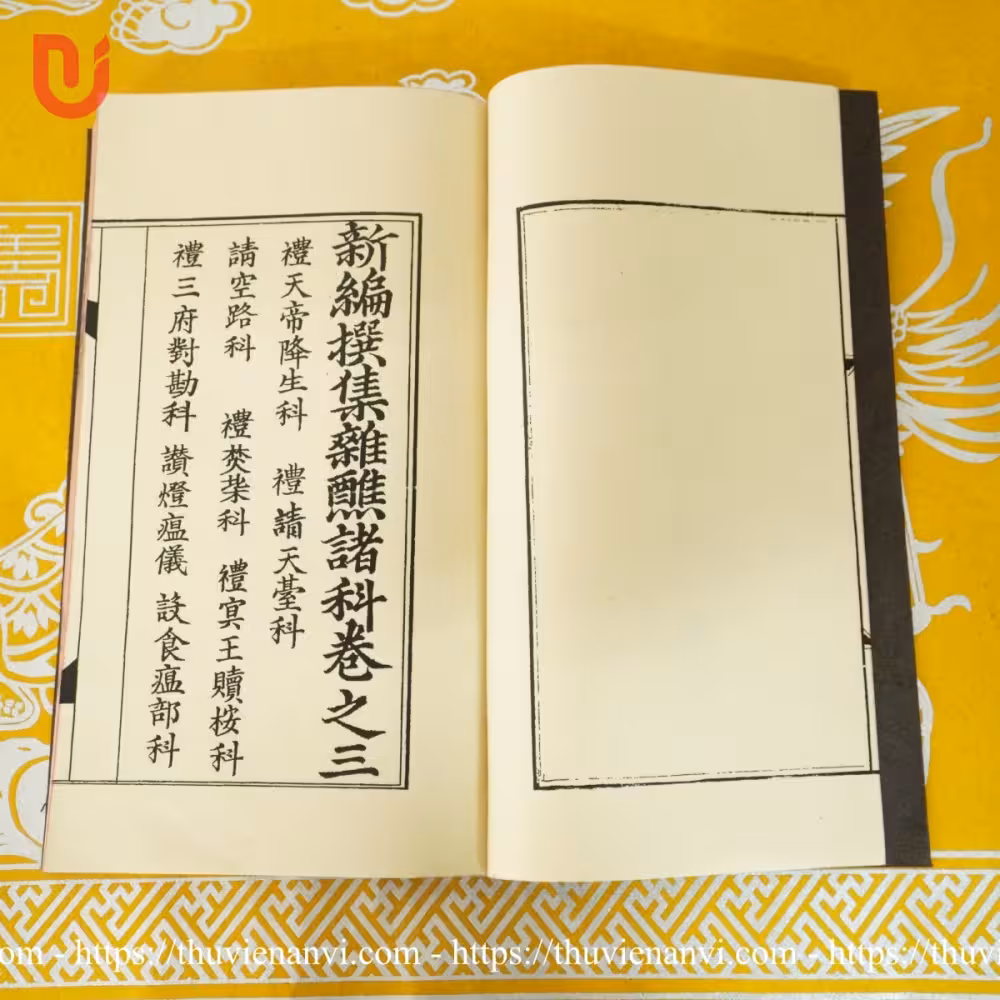 新編撰集雜醮諸科卷之三
禮天帝降生科 禮請天臺科
請空路科 禮焚柴科 禮冥王贖按科
禮三府對勘科 讚燈瘟儀 設食瘟部科
om - https://thuvienanvi.com - https://thuvienanvi.com - https://thuvi